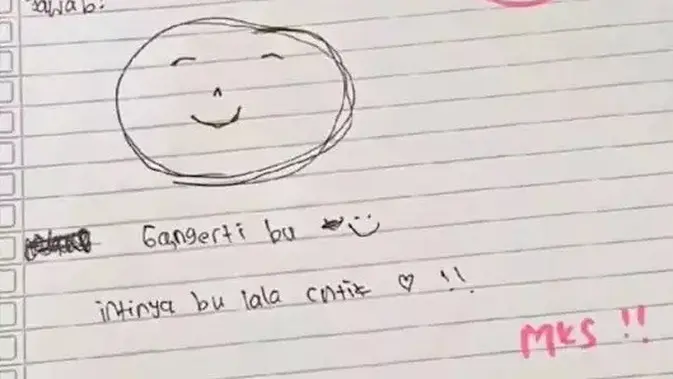 Jawab:
Gangerti bu
intinya bu lala cntik ♡ !!
MKS !!